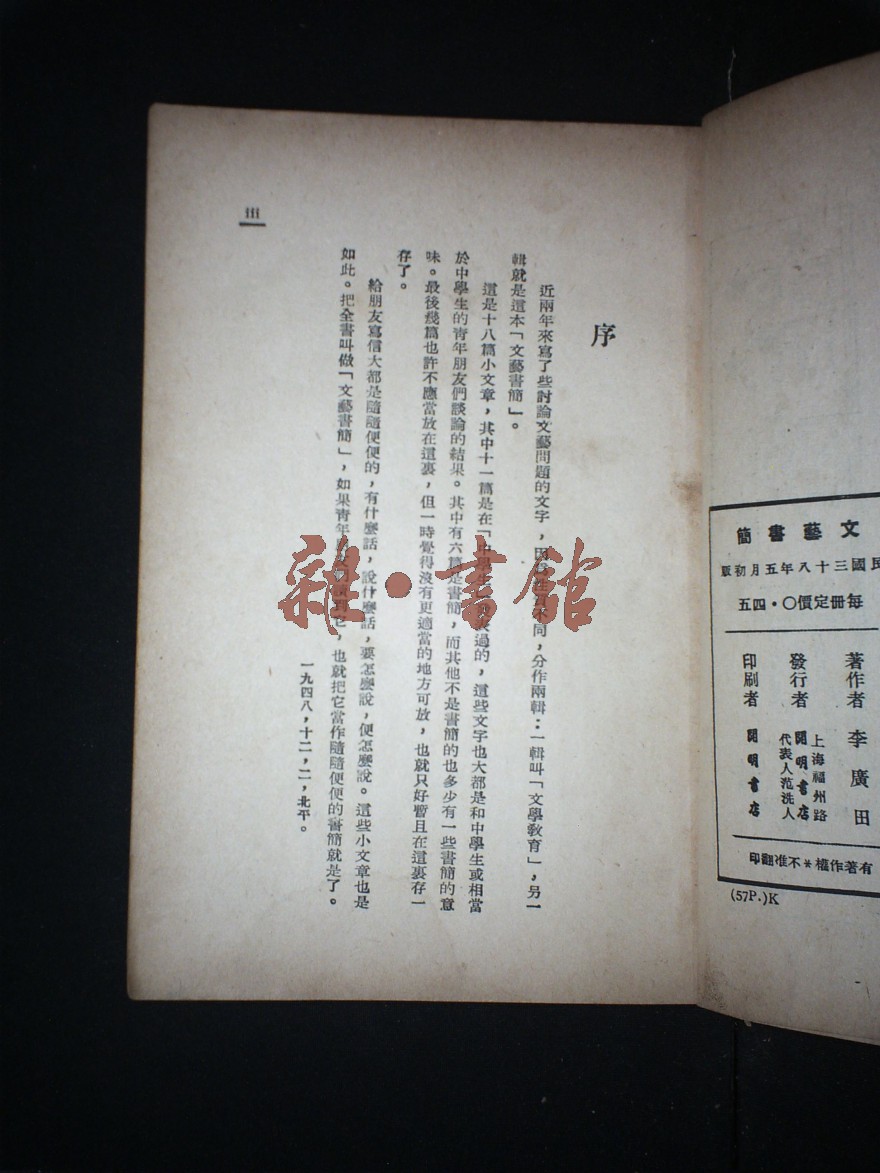 文藝書簡
民國三十八年五月初版
每冊定價〇・四五
著作者 李廣田
發行者 上海福州路 開明書店
代表人范洗人
印刷者 開明書店
有著作權＊不准翻印
(57P.)K
序
近兩年來寫了些討論文藝問題的文字，因爲性質不同，分作兩輯：一輯叫「文學教育」，另一
輯就是這本「文藝書簡」。
這是十八篇小文章，其中十一篇是在「中學生」發表過的，這些文字也大都是和中學生或相當
於中學生的青年朋友們談論的結果。其中有六篇是書簡，而其他不是書簡的也多少有一些書簡的意
味。最後幾篇也許不應當放在這裏，但一時覺得沒有更適當的地方可放，也就只好暫且在這裏存一
存了。
給朋友寫信大都是隨隨便便的，有什麼話，說什麼話，要怎麼說，便怎麼說。這些小文章也是
如此。把全書叫做「文藝書簡」，如果青年讀到它，也就把它當作隨隨便便的書簡就是了。
一九四八，十二，二，北平。
iii
雜・書館